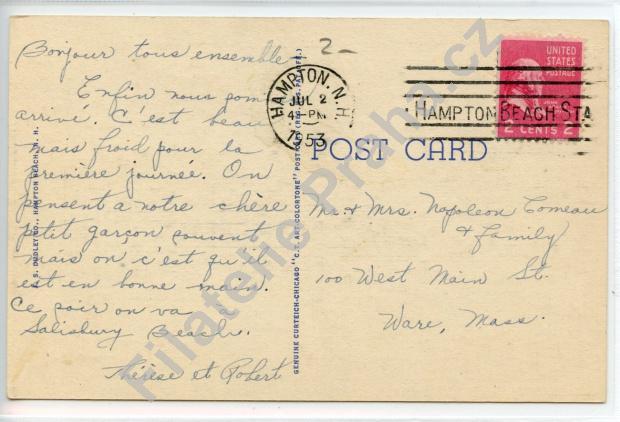 Bonjour tous ensemble -
Enfin nous som
arrivé. C'est beau
mais froid pour la
première journée. On
pensent a notre chère
ptit garçon souvent
mais on c'est qu'il
est en bonne main.
Ce soir on va
Salisbury Beach.
Thérèse et Robert
S. DUDLEY CO., HAMPTON BEACH, N. H.
GENUINE CURTEICH-CHICAGO "C.T. ART-COLORTONE" POST (REG. U.S. PAT. OFF.)
2-
HAMPTON, N.H.
JUL 2
4 - PM
1953
HAMPTON BEACH STA
UNITED
STATES
POSTAGE
2 CENTS 2
POST CARD
Mr. & Mrs. Napoleon Comeau
& Family
100 West Main St.
Ware, Mass.
Filatelie Praha.cz